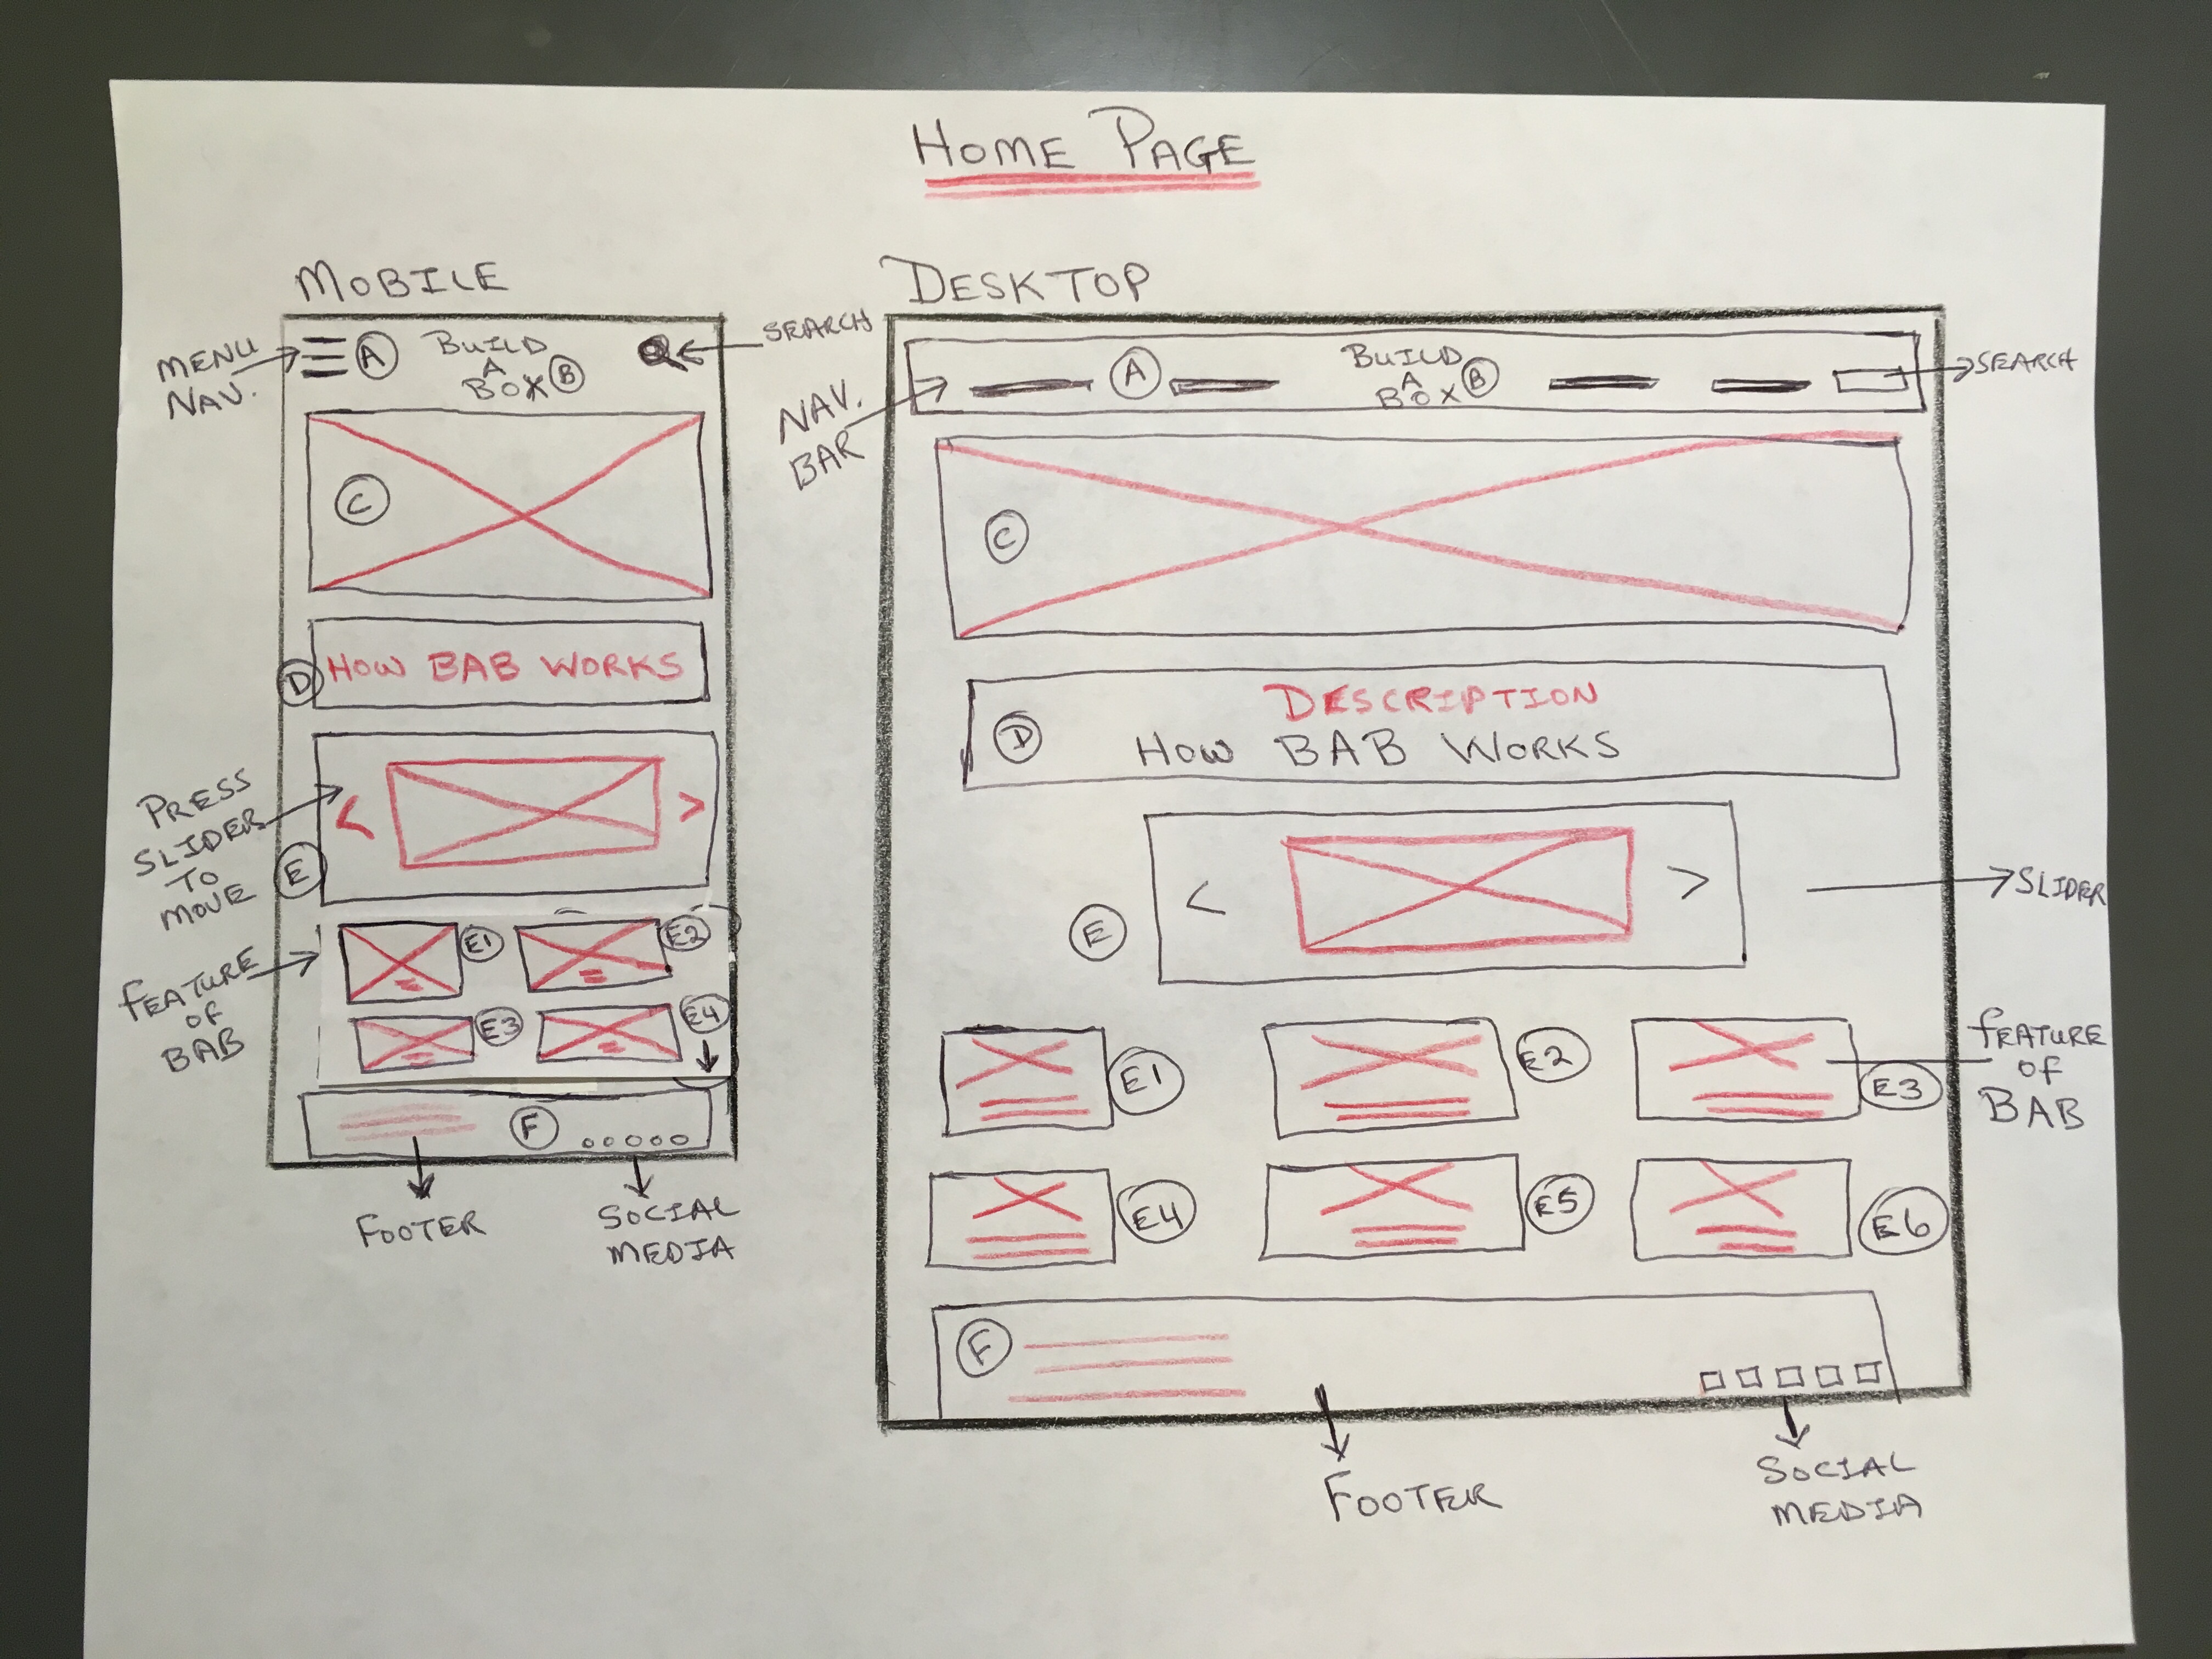 HOME PAGE
MOBILE
MENU
NAV.
A
BUILD
A
BOX B
SEARCH
C
D HOW BAB WORKS
PRESS
SLIDER
TO
MOVE
< >
E
E1
E2
FEATURE
OF
BAB
E3
E4
F
FOOTER
SOCIAL
MEDIA
DESKTOP
NAV.
BAR
A
BUILD
A
BOX B
SEARCH
C
D
DESCRIPTION
HOW BAB WORKS
< >
E
SLIDER
E1
E2
E3
FEATURE
OF
BAB
E4
E5
E6
F
FOOTER
SOCIAL
MEDIA